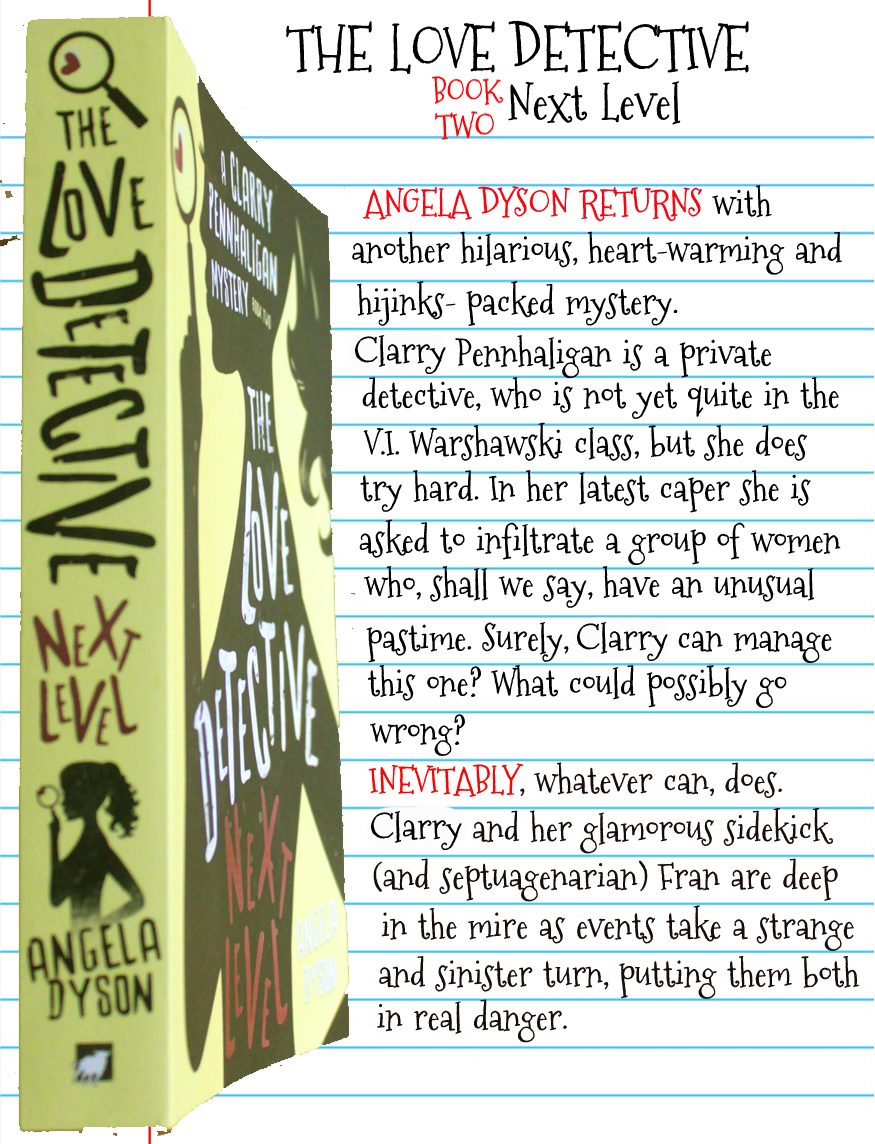 THE LOVE DETECTIVE
BOOK TWO Next Level
ANGELA DYSON RETURNS with
another hilarious, heart-warming and
hijinks- packed mystery.
Clarry Pennhaligan is a private
detective, who is not yet quite in the
V.I. Warshawski class, but she does
try hard. In her latest caper she is
asked to infiltrate a group of women
who, shall we say, have an unusual
pastime. Surely, Clarry can manage
this one? What could possibly go
wrong?
INEVITABLY, whatever can, does.
Clarry and her glamorous sidekick
(and septuagenarian) Fran are deep
in the mire as events take a strange
and sinister turn, putting them both
in real danger.
THE
LOVE
DETECTIVE
NEXT
LEVEL
ANGELA
DYSON
A CLARRY
PENNHALIGAN
MYSTERY BOOK TWO
THE
LOVE
DETECTIVE
NEXT
LEVEL
ANGELA
DYSON